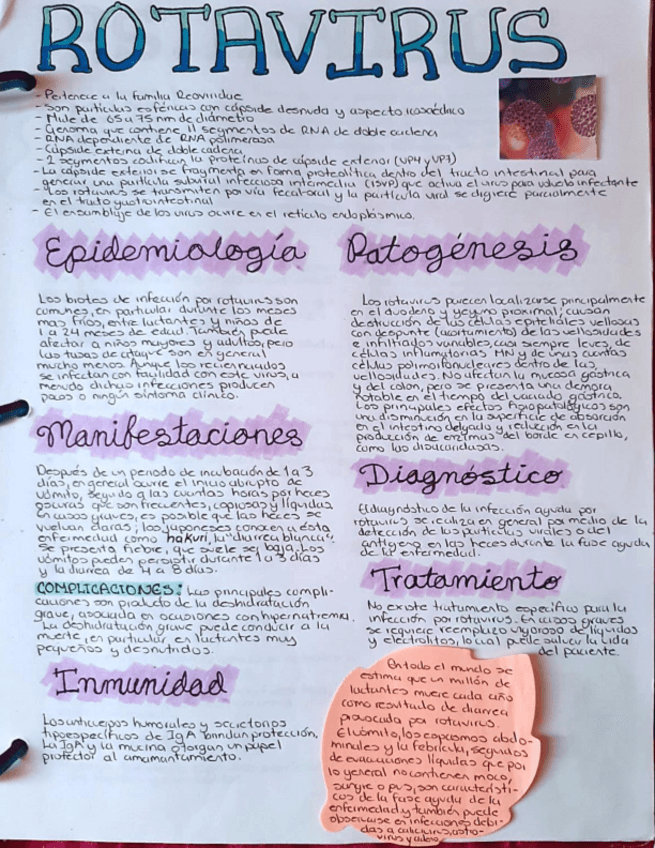 ROTAVIRUS
- Pertenece a la familia Reoviridae
- Son partículas esféricas con cápside desnuda y aspecto icosaédrico
- Mide de 65 a 75 nm de diámetro
- Genoma que contiene 11 segmentos de RNA de doble cadena
- RNA dependiente de RNA polimerasa
- Cápside externa de doble cadena
- 2 segmentos codifican la proteínas de cápside exterior (VP4 y VP7)
- La cápside exterior se fragmenta en forma proteolítica dentro del tracto intestinal para
generar una partícula subviral infecciosa intermedia (ISVP) que activa el virus para volverlo infectante
- Los rotavirus se transmiten por vía fecal-oral y la partícula viral se digiere parcialmente
en el tracto gastrointestinal
- El ensamblaje de los virus ocurre en el retículo endoplásmico.
Epidemiología
Los brotes de infección por rotavirus son
comunes, en particular durante los meses
mas fríos, entre lactantes y niños de
1 a 24 meses de edad. También puede
afectar a niños mayores y adultos, pero
las tasas de ataque son en general
mucho menos. Aunque los recien nacidos
se infectan con facilidad con este virus, a
menudo dichas infecciones producen
pocos o ningún síntoma clínico.
Manifestaciones
Después de un periodo de incubación de 1 a 3
días, en general ocurre el inicio abrupto de
vómito, seguido a las cuantas horas por heces
oscuras que son frecuentes, copiosas y líquidas
En casos graves, es posible que las heces se
vuelvan claras; los japoneses conocen a esta
enfermedad como hakuri, la "diarrea blanca".
Se presenta fiebre, que suele ser baja. Los
vómitos pueden persistir durante 1 a 3 días
y la diarrea de 4 a 8 días.
COMPLICACIONES: Las principales compli-
caciones son producto de la deshidratación
grave, asociada en ocasiones con hipernatremia.
La deshidratación grave puede conducir a la
muerte, en particular en lactantes muy
pequeños y desnutridos.
Inmunidad
Los anticuerpos humorales y secretorios
tipoespecíficos de IgA brindan protección,
La IgA y la mucina otorgan un papel
protector al amamantamiento.
Patogénesis
Los rotavirus parecen localizarse principalmente
en el duodeno y yeyuno proximal; causan
destrucción de las células epiteliales vellosas
con despunte (acortamiento) de las vellosidades
e infiltrados variables, casi siempre leves, de
células inflamatorias MN y de unas cuantas
células polimorfonucleares dentro de las
vellosidades. No afectan la mucosa gástrica
y del colon, pero se presenta una demora
notable en el tiempo del vaciado gástrico.
Los principales efectos fisiopatológicos son
una disminución en la superficie de absorción
en el intestino delgado y reducción en la
producción de enzimas del borde en cepillo,
como las disacaridasas.
Diagnóstico
El diagnóstico de la infección aguda por
rotavirus se realiza en general por medio de la
detección de las partículas virales o del
antígeno en las heces durante la fase aguda
de la enfermedad.
Tratamiento
No existe tratamiento específico para la
infección por rotavirus. En casos graves
se requiere reemplazo vigoroso de líquidos
y electrolitos, lo cual puede salvar la vida
del paciente.
En todo el mundo se
estima que un millón de
lactantes muere cada año
como resultado de diarrea
provocada por rotavirus.
El vómito, los espasmos abdo-
minales y la febrícula, seguidos
de evacuaciones líquidas que por
lo general no contienen moco,
sangre o pus, son característi-
cos de la fase aguda de la
enfermedad y también puede
observarse en infecciones debi-
das a calicivirus, astro-
virus y adeno.